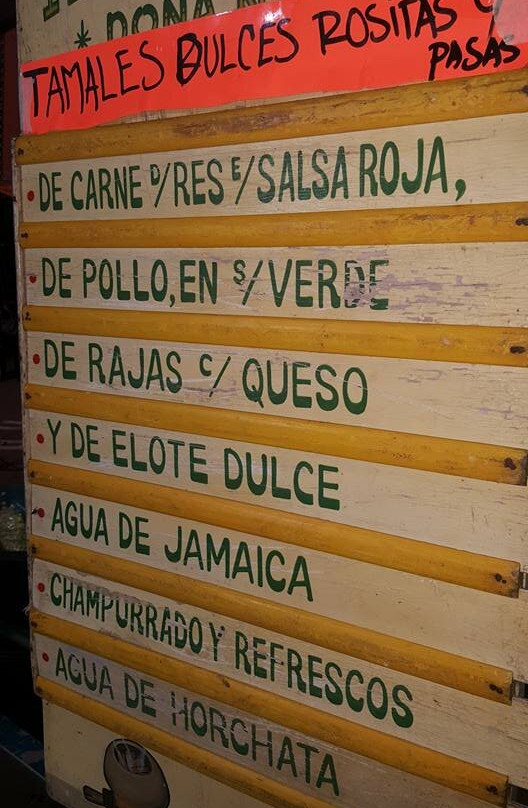 DOÑA
TAMALES DULCES ROSITAS
PASAS
DE CARNE D/RES E/SALSA ROJA,
DE POLLO, EN S/VERDE
DE RAJAS C/ QUESO
Y DE ELOTE DULCE
AGUA DE JAMAICA
CHAMPURRADO Y REFRESCOS
AGUA DE HORCHATA